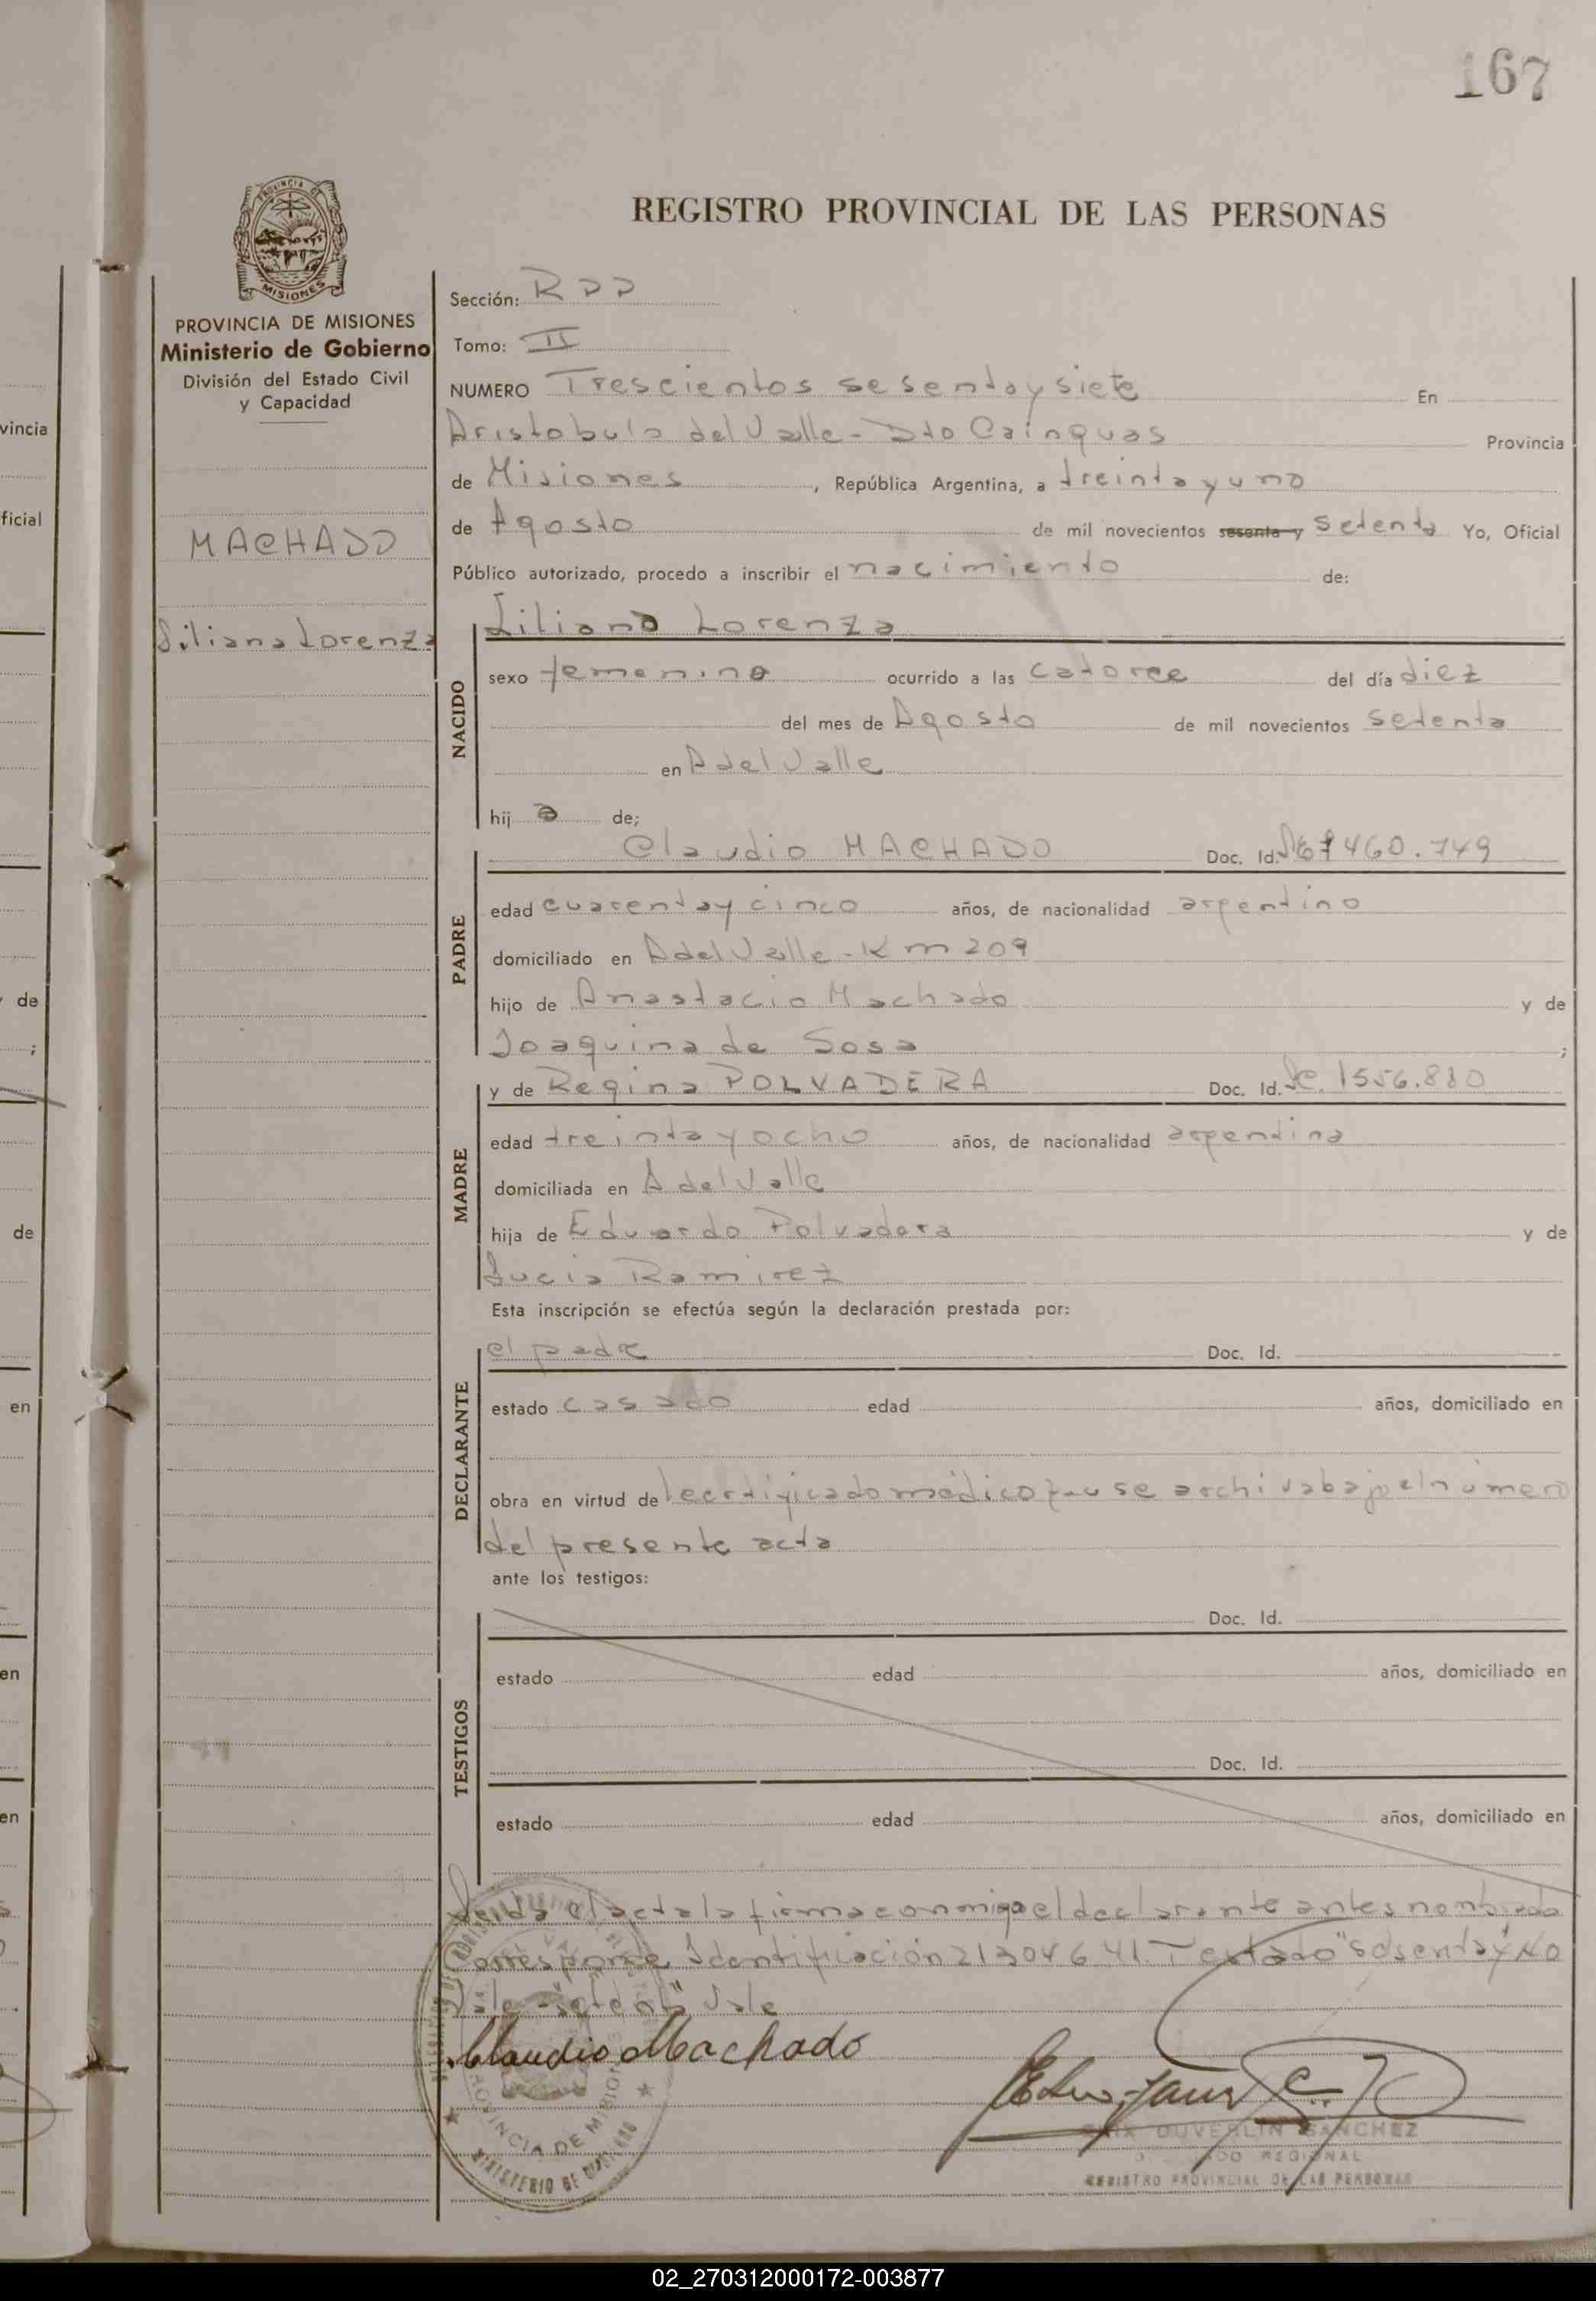 167
PROVINCIA DE MISIONES
REGISTRO PROVINCIAL DE LAS PERSONAS
PROVINCIA DE MISIONES
Ministerio de Gobierno
División del Estado Civil
y Capacidad
MACHADO
Liliana Lorenza
Sección:
Tomo: II
NUMERO Trescientos sesenta y siete En
Aristobulo del Valle - Dto Cainguas Provincia
de Misiones, República Argentina, a treinta y uno
de Agosto de mil novecientos sesenta y Setenta Yo, Oficial
Público autorizado, procedo a inscribir el nacimiento de:
NACIDO
Liliana Lorenza
sexo femenino ocurrido a las catorce del día diez
del mes de Agosto de mil novecientos setenta
en A del Valle
hij a de;
PADRE
Claudio MACHADO Doc. Id. 460.749
edad cuarenta y cinco años, de nacionalidad argentino
domiciliado en A del Valle - Km 209
hijo de Anastacio Machado y de
Joaquina de Sosa ;
MADRE
y de Regina POLVADERA Doc. Id.
edad treinta y ocho años, de nacionalidad argentina
domiciliada en A del Valle
hija de Eduardo Polvadera y de
Lucia Ramirez
Esta inscripción se efectúa según la declaración prestada por:
DECLARANTE
el padre Doc. Id.
estado casado edad años, domiciliado en
obra en virtud de certificado médico que se archiva bajo el número
del presente acta
ante los testigos:
TESTIGOS
Doc. Id.
estado edad años, domiciliado en
Doc. Id.
estado edad años, domiciliado en
Leida el acta la firma conmigo el declarante antes nombrado
Corresponde Identificación 21304641. Testado "sesenta y" No
Vale - "setenta" Vale
Claudio Machado
DUVERLIN SANCHEZ
REGIONAL
REGISTRO PROVINCIAL DE LAS PERSONAS
PROVINCIA DE MISIONES
MINISTERIO DE GOBIERNO
vincia
ficial
de
;
de
en
en
en
02_270312000172-003877